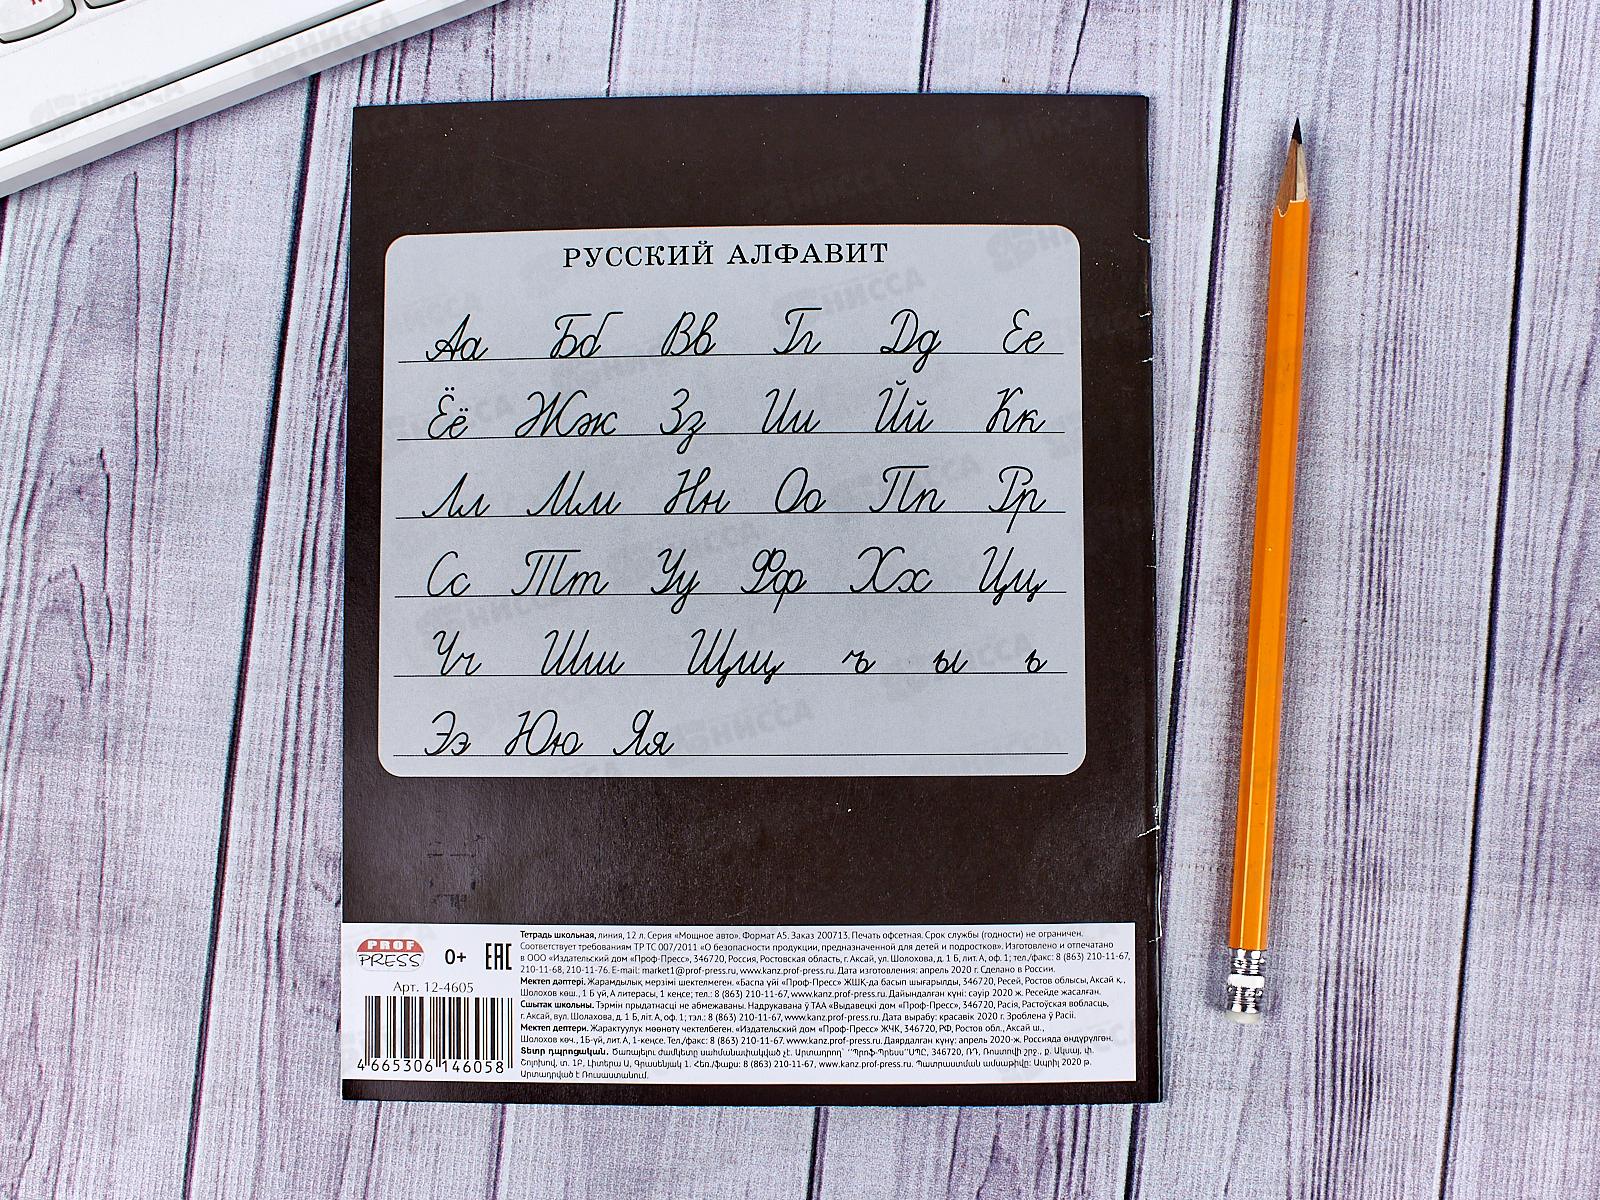 РУССКИЙ АЛФАВИТ
Аа Бб Вв Гг Дд Ее
Ёё Жж Зз Ии Йй Кк
Лл Мм Нн Оо Пп Рр
Сс Тт Уу Фф Хх Цц
Чч Шш Щщ ъ ы ь
Ээ Юю Яя
PROF PRESS
0+
EAC
Арт. 12-4605
4 665306 146058
Тетрадь школьная, линия, 12 л. Серия «Мощное авто». Формат А5. Заказ 200713. Печать офсетная. Срок службы (годности) не ограничен.
Соответствует требованиям ТР ТС 007/2011 «О безопасности продукции, предназначенной для детей и подростков». Изготовлено и отпечатано
в ООО «Издательский дом «Проф-Пресс», 346720, Россия, Ростовская область, г. Аксай, ул. Шолохова, д. 1 Б, лит. А, оф. 1; тел./факс: 8 (863) 210-11-67,
210-11-68, 210-11-76. E-mail: market1@prof-press.ru, www.kanz.prof-press.ru. Дата изготовления: апрель 2020 г. Сделано в России.
Мектеп дәптері. Жарамдылық мерзімі шектелмеген. «Баспа үйі «Проф-Пресс» ЖШҚ-да басып шығарылды, 346720, Ресей, Ростов облысы, Аксай қ.,
Шолохов көш., 1 Б үй, А литерасы, 1 кеңсе; тел.: 8 (863) 210-11-67, www.kanz.prof-press.ru. Дайындалған күні: сәуір 2020 ж. Ресейде жасалған.
Сшытак школьны. Тэрмін прыдатнасці не абмежаваны. Надрукавана ў ТАА «Выдавецкі дом «Проф-Пресс», 346720, Расія, Растоўская вобласць,
г. Аксай, вул. Шолахава, д. 1 Б, літ. А, оф. 1; тэл.: 8 (863) 210-11-67, www.kanz.prof-press.ru. Дата вырабу: красавік 2020 г. Зроблена ў Расіі.
Мектеп дептери. Жарактуулук мөөнөтү чектелбеген. «Издательский дом «Проф-Пресс» ЖЧК, 346720, РФ, Ростов обл., Аксай ш.,
Шолохов көч., 1Б-үй, лит. А, 1-кеңсе. Тел./факс: 8 (863) 210-11-67. www.kanz.prof-press.ru. Даярдалган күнү: апрель 2020-ж. Россияда өндүрүлгөн.
Տետր դպրոցական. Ծառայելու ժամկետը սահմանափակված չէ. Արտադրող՝ ''Պրոֆ-Պրեսս''ՍՊԸ, 346720, ՌԴ, Ռոստովի շրջ., ք. Ակսայ, փ.
Շոլոխով, տ. 1Բ, Լիտերա Ա, Գրասենյակ 1. Հեռ./ֆաքս: 8 (863) 210-11-67, www.kanz.prof-press.ru. Պատրաստման ամսաթիվը: Ապրիլ 2020 թ.
Արտադրված է Ռուսաստանում.